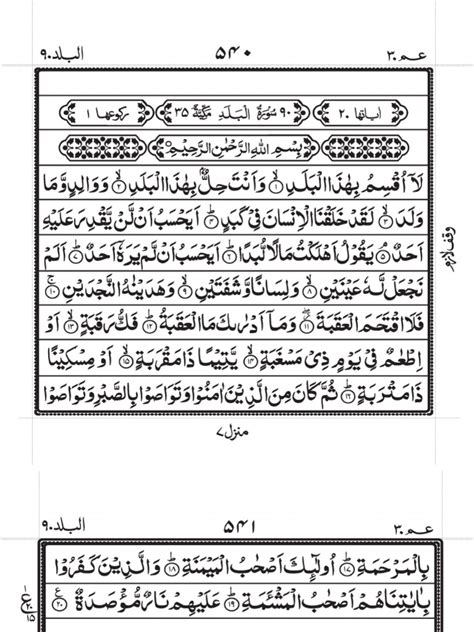 عـمـ ٣٠ ٥٤٠ البلد ٩٠
اٰیاتها ٢٠ ٩٠ سُوْرَةُ الْبَلَدِ مَكِّيَّةٌ ٣٥ رکوعها ١
بِسْمِ اللّٰهِ الرَّحْمٰنِ الرَّحِيْمِ
لَآ اُقْسِمُ بِهٰذَا الْبَلَدِ ۙ﴿١﴾ وَاَنْتَ حِلٌّۢ بِهٰذَا الْبَلَدِ ۙ﴿٢﴾ وَوَالِدٍ وَّمَا
وَلَدَ ۙ﴿٣﴾ لَقَدْ خَلَقْنَا الْاِنْسَانَ فِيْ كَبَدٍ ؕ﴿٤﴾ اَيَحْسَبُ اَنْ لَّنْ يَّقْدِرَ عَلَيْهِ
اَحَدٌ ۘ﴿٥﴾ يَقُوْلُ اَهْلَكْتُ مَالًا لُّبَدًا ؕ﴿٦﴾ اَيَحْسَبُ اَنْ لَّمْ يَرَهٗٓ اَحَدٌ ؕ﴿٧﴾ اَلَمْ
نَجْعَلْ لَّهٗ عَيْنَيْنِ ۙ﴿٨﴾ وَلِسَانًا وَّشَفَتَيْنِ ۙ﴿٩﴾ وَهَدَيْنٰهُ النَّجْدَيْنِ ۚ﴿١٠﴾
فَلَا اقْتَحَمَ الْعَقَبَةَ ۖ﴿١١﴾ وَمَآ اَدْرٰىكَ مَا الْعَقَبَةُ ؕ﴿١٢﴾ فَكُّ رَقَبَةٍ ۙ﴿١٣﴾ اَوْ
اِطْعٰمٌ فِيْ يَوْمٍ ذِيْ مَسْغَبَةٍ ۙ﴿١٤﴾ يَّتِيْمًا ذَا مَقْرَبَةٍ ۙ﴿١٥﴾ اَوْ مِسْكِيْنًا
ذَا مَتْرَبَةٍ ؕ﴿١٦﴾ ثُمَّ كَانَ مِنَ الَّذِيْنَ اٰمَنُوْا وَتَوَاصَوْا بِالصَّبْرِ وَتَوَاصَوْا
وقف لازم
منزل ٧
عـمـ ٣٠ ٥٤١ البلد ٩٠
بِالْمَرْحَمَةِ ؕ﴿١٧﴾ اُولٰٓئِكَ اَصْحٰبُ الْمَيْمَنَةِ ؕ﴿١٨﴾ وَالَّذِيْنَ كَفَرُوْا
بِاٰيٰتِنَا هُمْ اَصْحٰبُ الْمَشْئَمَةِ ؕ﴿١٩﴾ عَلَيْهِمْ نَارٌ مُّؤْصَدَةٌ ﴿٢٠﴾ ع